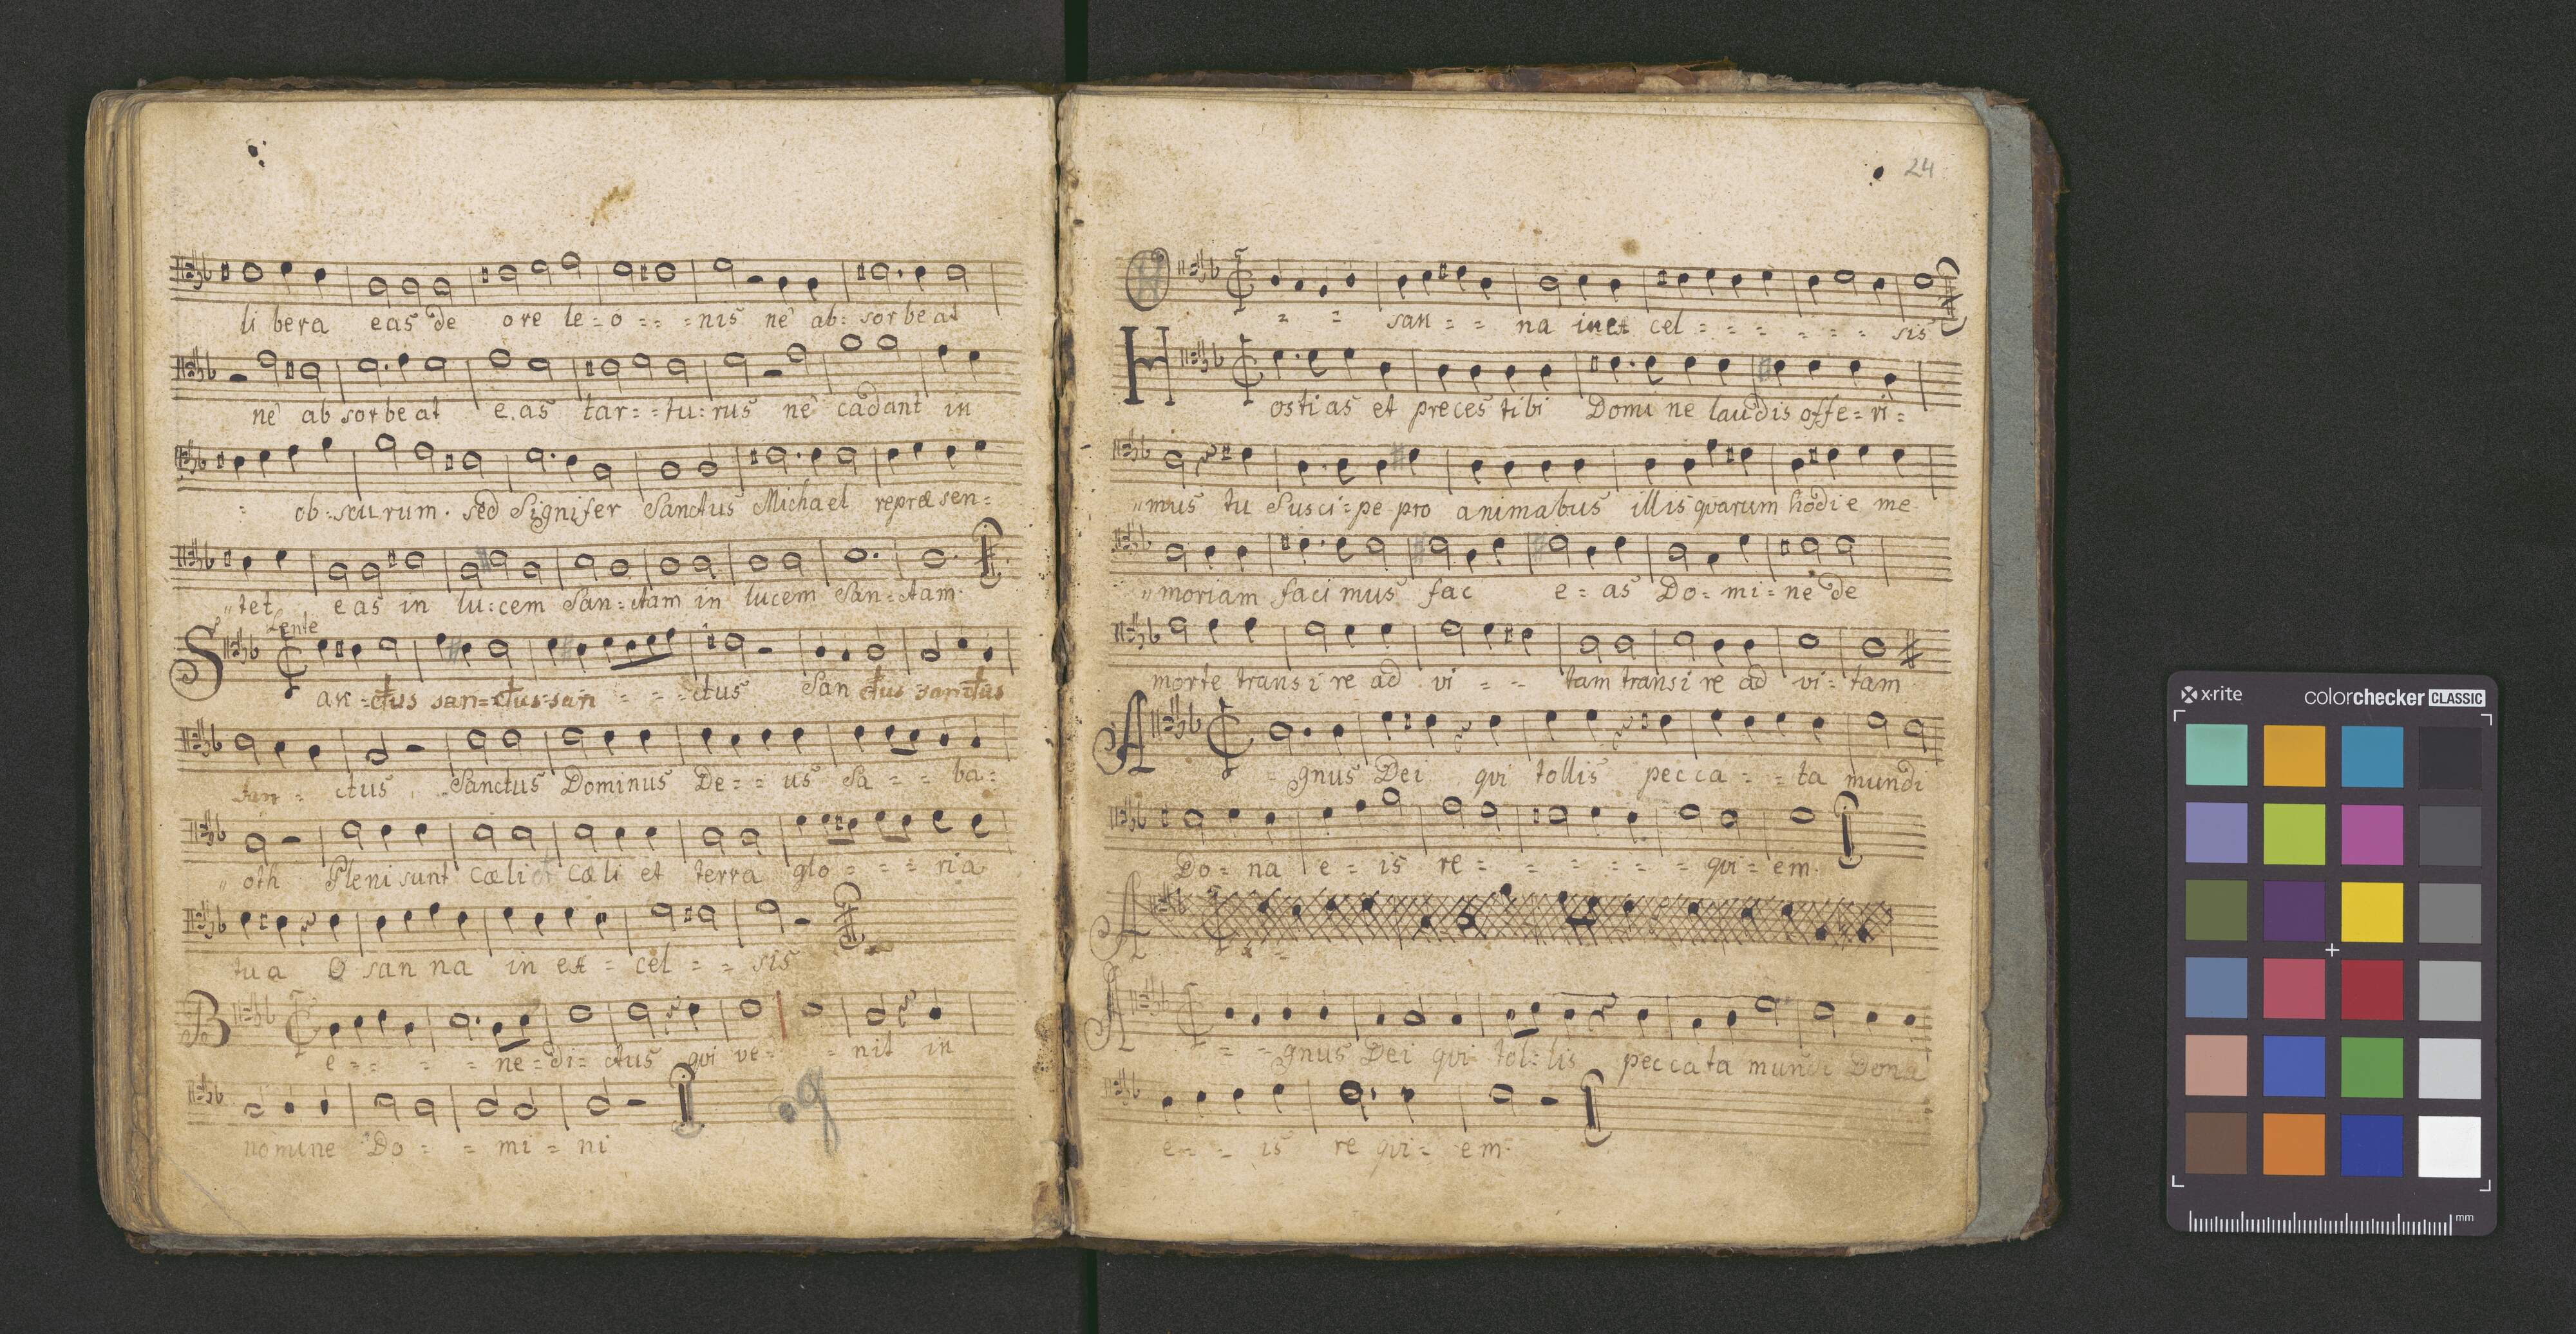 li bera eas de ore le = o = = = nis ne ab = sor be at
ne ab sor be at e. as tar = = tu : rus ne cadant in
= ob = scu rum. sed Signifer Sanctus Michael repræ sen =
„tet eas in lu : cem San = ctam in lucem San = ctam.
Lente
S an = ctus san = ctus = san = = = ctus San ctus sanctus
San = ctus Sanctus Dominus De = = us Sa = = ba =
„oth Pleni sunt Cæli Cæli et terra glo = = = ria
tua O san na in ex = cel = = sis
B e = = = = ne = di = ctus qvi ve = = nit in
nomine Do = = mi = ni
g
24
O = = san = = na in ex cel = = = = = = sis
H ostias et preces tibi Domi ne laudis offe = ri =
„mus tu Susci = pe pro animabus illis qvarum hodie me
„moriam faci mus fac e = as Do = mi = ne de
morte transi re ad vi = = tam transi re ad vi = tam
A = gnus Dei qvi tollis pecca = = ta mundi
Do = na e = is re = = = = = = qvi = em.
A
A = = gnus Dei qvi tol = lis peccata mundi Dona
e = = is re qvi = em.
x-rite colorchecker CLASSIC
mm